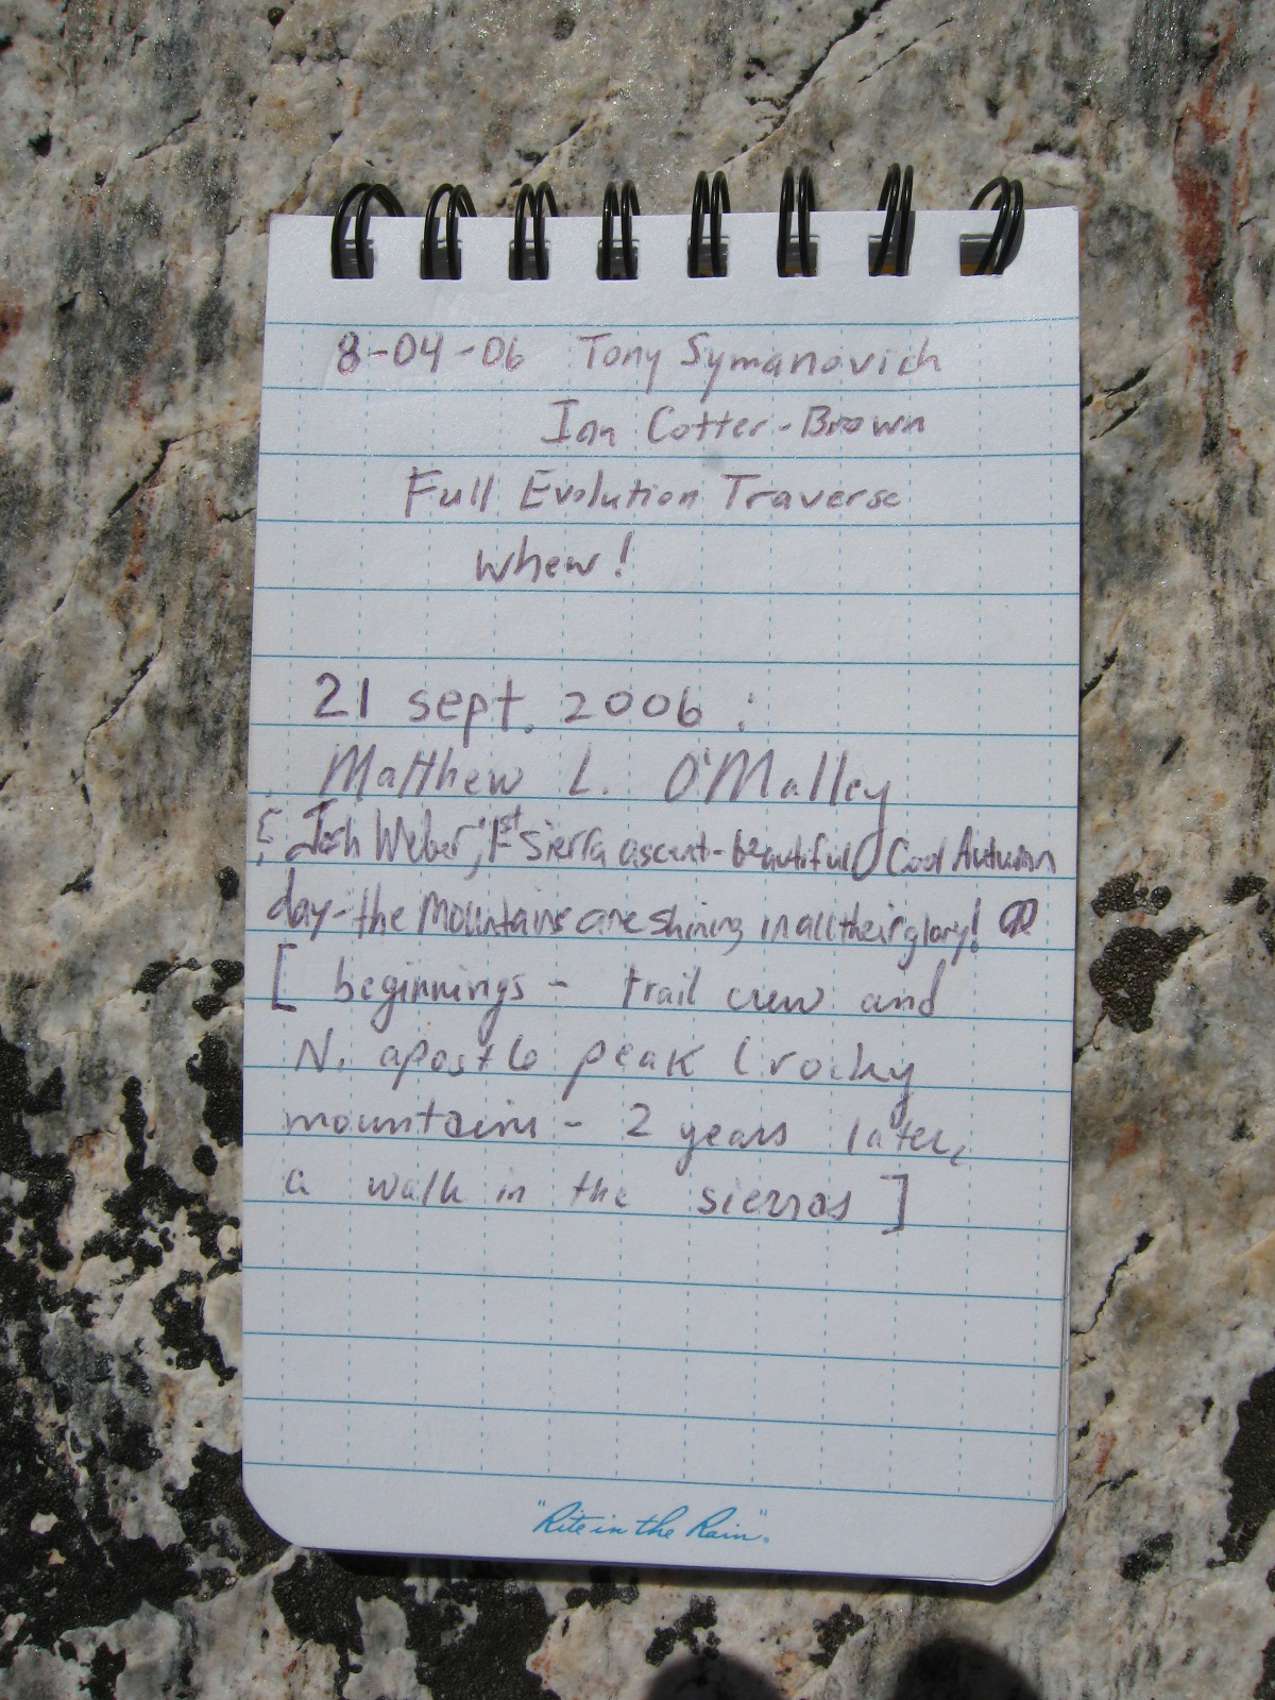 8-04-06 Tony Symanovich
Ian Cotter-Brown
Full Evolution Traverse
whew!
21 sept. 2006 :
Matthew L. O'Malley
Josh Weber; 1st Sierra ascent - beautiful Cool Autumn
day - the Mountains are shining in all their glory!
[ beginnings - trail crew and
N. apostle peak (rocky
mountains - 2 years later,
a walk in the sierras ]
"Rite in the Rain".